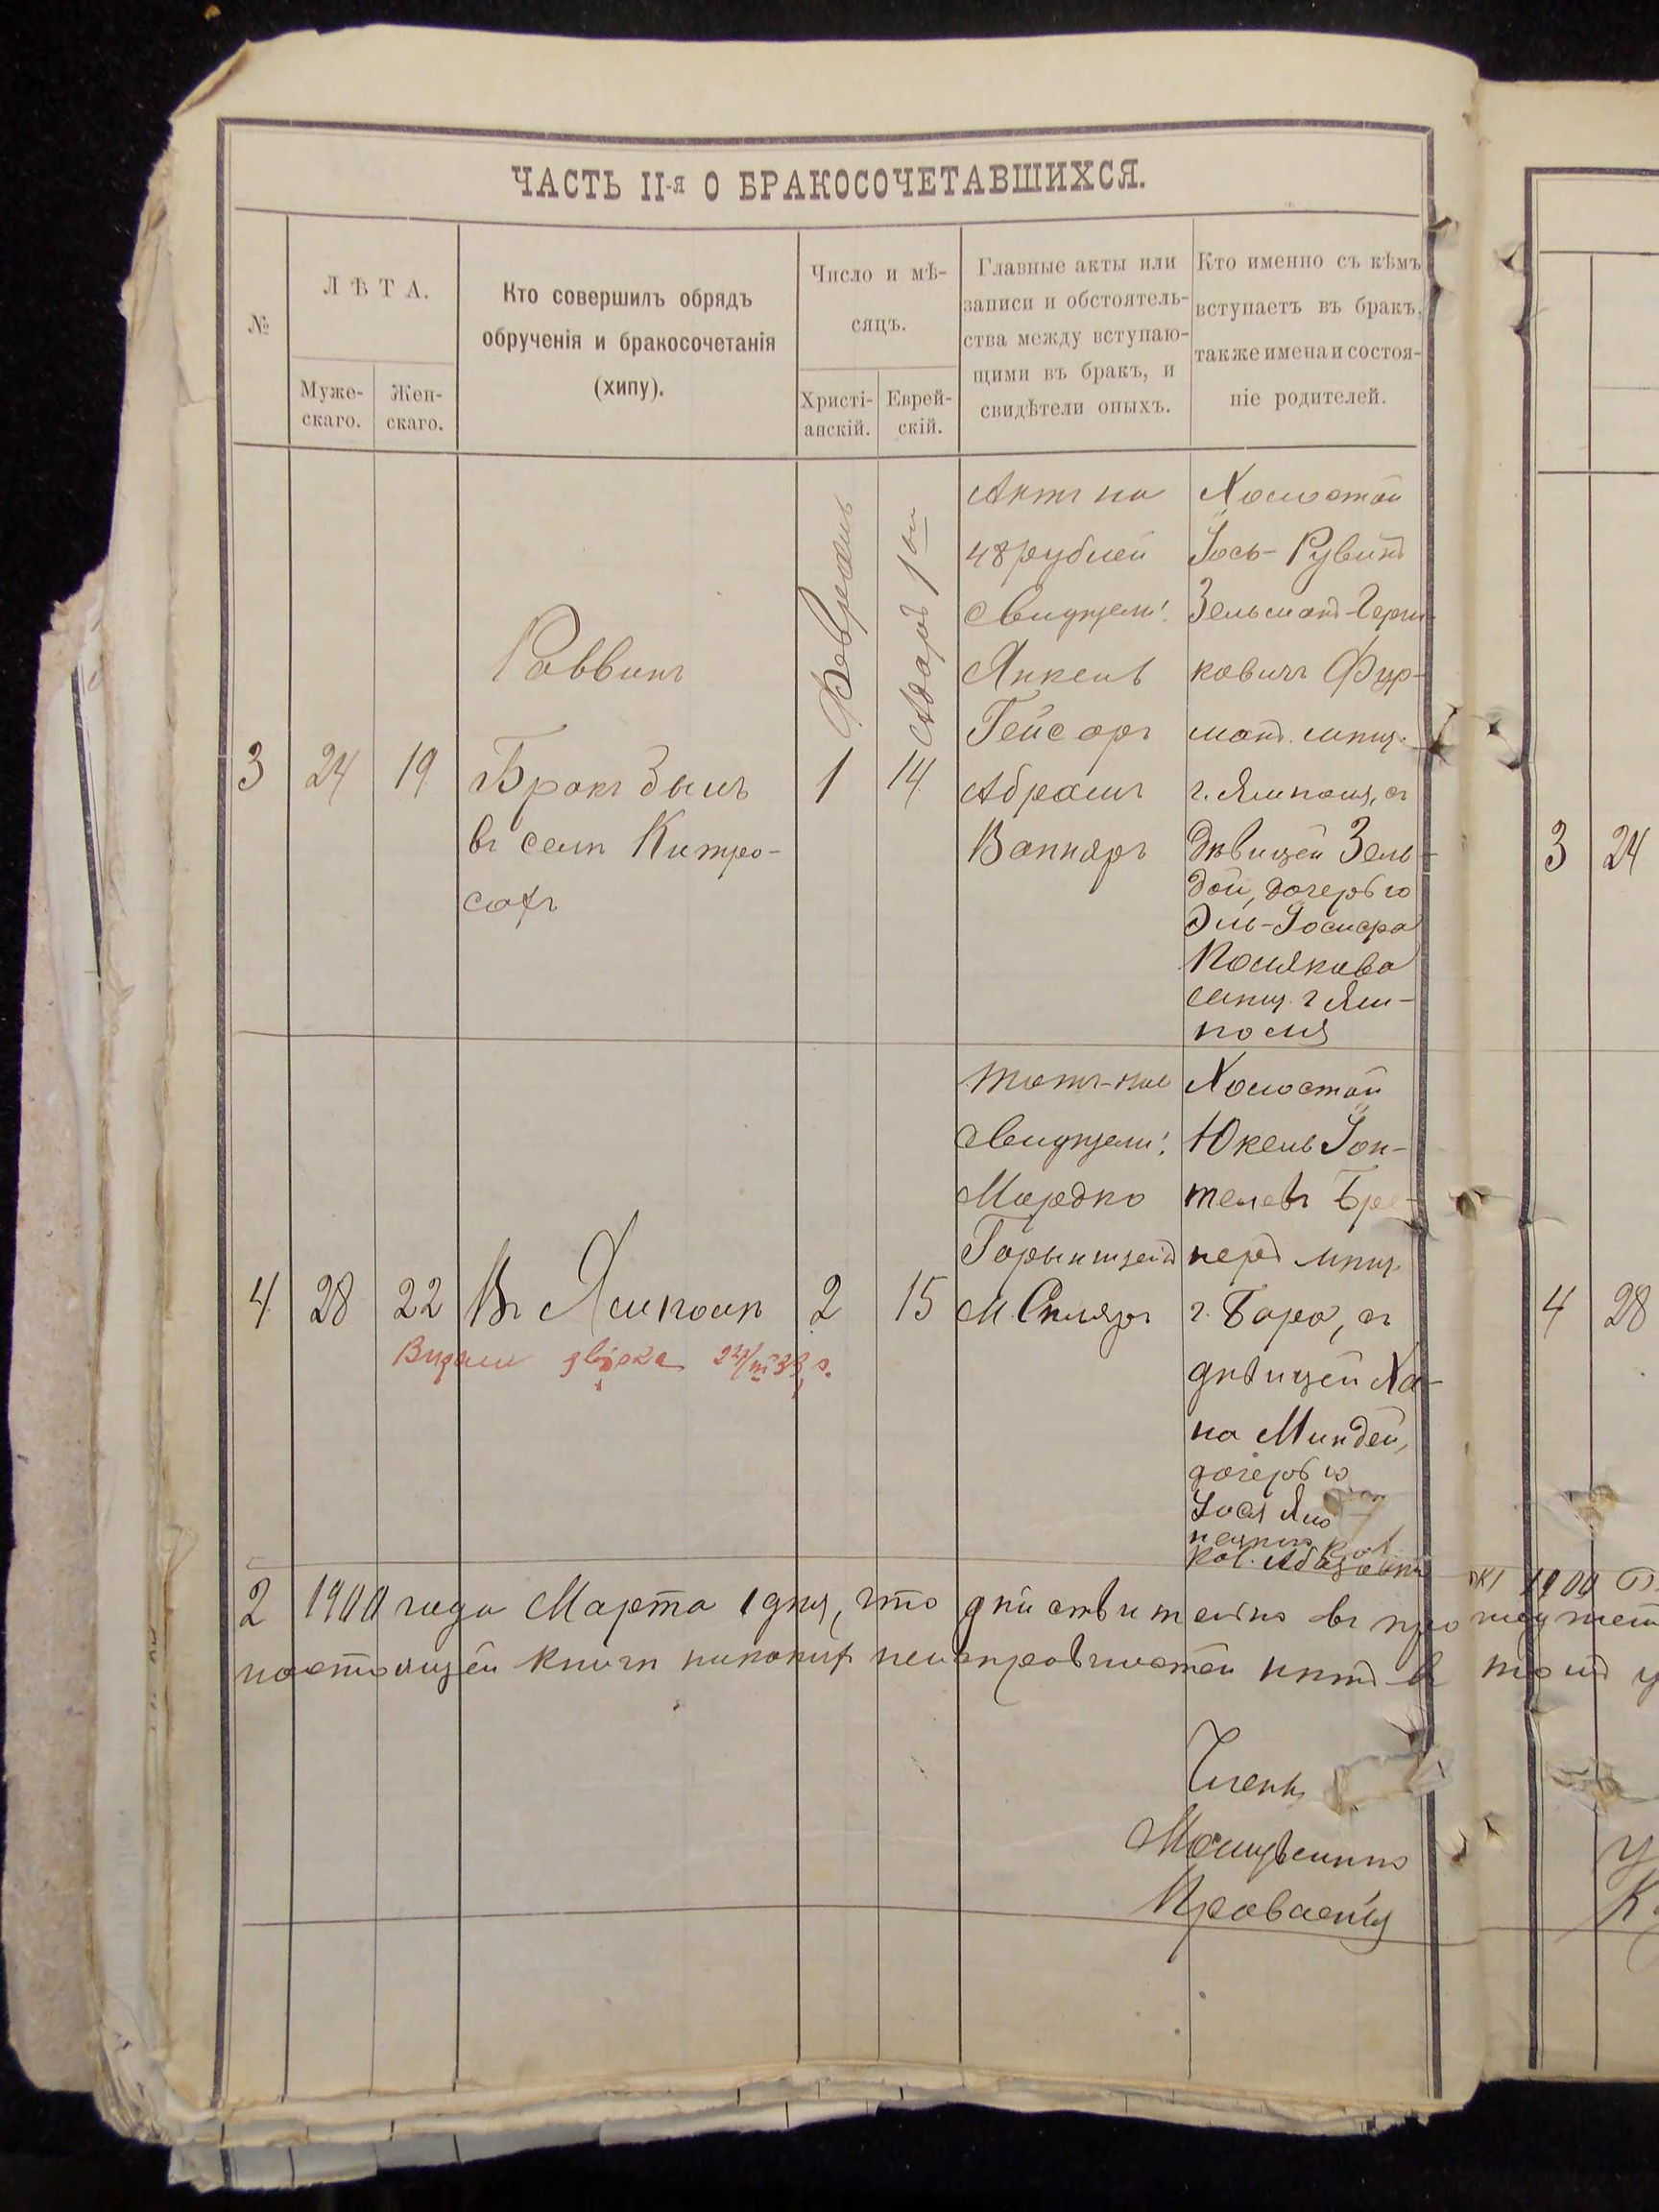 ЧАСТЬ II-я О БРАКОСОЧЕТАВШИХСЯ.
№
ЛѢТА.
Муже-
скаго.
Жен-
скаго.
Кто совершилъ обрядъ
обрученія и бракосочетанія
(хипу).
Число и мѣ-
сяцъ.
Христі-
анскій.
Еврей-
скій.
Главные акты или
записи и обстоятель-
ства между вступаю-
щими въ бракъ, и
свидѣтели оныхъ.
Кто именно съ кѣмъ
вступаетъ въ бракъ,
также имена и состоя-
ніе родителей.
3
24
19
Раввинъ
Бракъ былъ
въ селѣ Китро-
сахъ
Февраль
1
Адаръ 1ый
14
Актъ на
48 рублей
Свидѣтели:
Янкель
Гейсаръ
Абрамъ
Вапняръ
Холостой
Іось-Рувинъ
Зельманъ-Герш-
ковичъ Фур-
манъ. мѣщ.
г. Ямполя, съ
дѣвицей Зель-
дой, дочерью
Эль-Іосифа
Полякова
мѣщ. г Ям-
поля
4
28
22
Въ Ямполѣ
2
15
тотъ-же
Свидѣтели:
Мордко
М. Скляръ
Холостой
Юкель Іон-
телевъ Бре-
неръ мѣщ.
г. Бара, съ
дѣвицей Ха-
на Миндей,
дочерью
Іося
кол.
Видали 22/III 33 р.
2 1900 года Марта 1 дня, что дѣйствительно въ про
настоящей книги никакихъ неисправностей нѣтъ въ томъ
Членъ
Мѣщанскаго
Правленія
3
24
4
28
1900